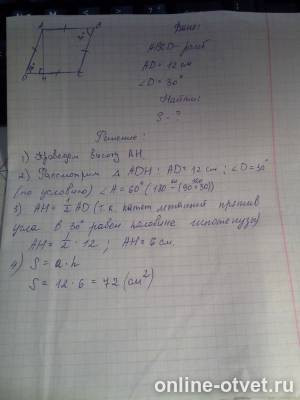 Дано:
ABCD - ромб
AD = 12 см
∠D = 30°
Найти:
S - ?
Решение:
1) Проведем высоту AH.
2) Рассмотрим △ ADH: AD = 12 см; ∠D = 30°
(по условию) ∠A = 60° (180 - (90+30))
3) AH = 1/2 AD (т.к. катет лежащий против
угла в 30° равен половине гипотенузы)
AH = 1/2 · 12; AH = 6 см.
4) S = a·h
S = 12·6 = 72 (см²)
online-otvet.ru